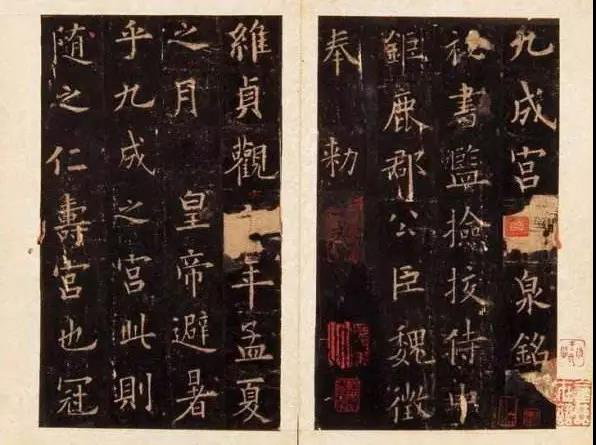 九成宮泉銘
祕書監撿挍侍中
鉅鹿郡公臣魏徵
奉勑
維貞觀年孟夏
之月 皇帝避暑
乎九成之宮此則
随之仁壽宮也冠